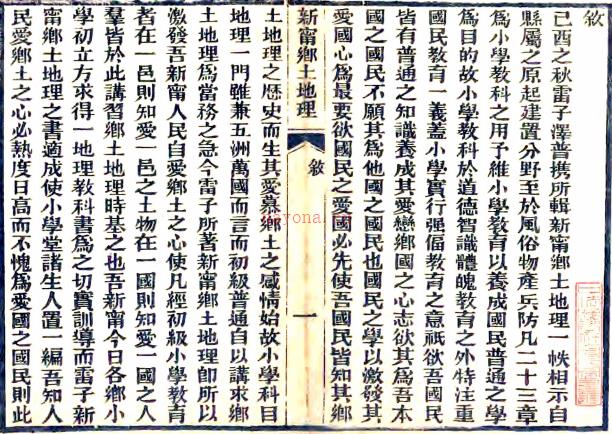 敘
己酉之秋雷子澤普攜所輯新甯鄉土地理一帙相示自
縣屬之原起建置分野至於風俗物產兵防凡二十三章
爲小學教科之用予維小學教育以養成國民普通之學
爲目的故小學教科於道德智識體魄教育之外特注重
國民教育一義蓋小學實行强偪教育之意祇欲吾國民
皆有普通之知識養成其愛戀鄉國之心志欲其爲吾本
國之國民不願其爲他國之國民也國民之學以激發其
愛國心爲最要欲國民之愛國必先使吾國民皆知其鄉
新甯鄉土地理
敘
一
土地理之歷史而生其愛慕鄉土之感情始故小學科目
地理一門雖兼五洲萬國而言而初級普通自以講求鄉
土地理爲當務之急今雷子所著新甯鄉土地理卽所以
激發吾新甯人民自愛鄉土之心使凡經初級小學教育
者在一邑則知愛一邑之土物在一國則知愛一國之人
羣皆於此講習鄉土地理時基之也吾新甯今日各鄉小
學初立方求得一地理教科書爲之切實訓導而雷子新
甯鄉土地理之書適成使小學堂諸生人置一編吾知人
民愛鄉土之心必熱度日高而不愧爲愛國之國民則此